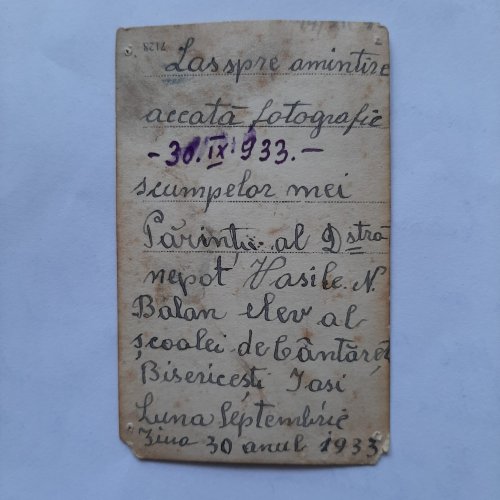 7128
Las spre amintire
accată fotografie
- 30. IX. 933. -
scumpelor mei
Părinți al Dstră
nepot Vasile. N.
Balan elev al
școalei de Cântăreț
Bisericești Iasi
Luna Septembrie
Ziua 30 anul 1933